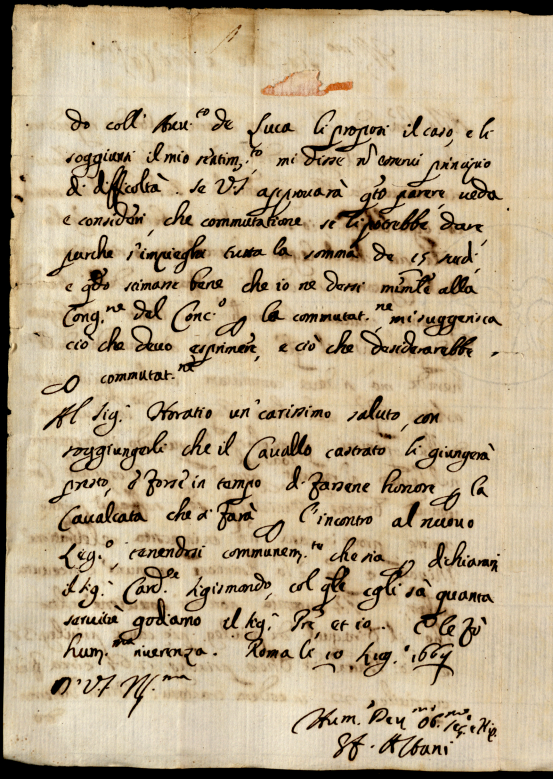 do coll' Avv.to de Luca li proposi il caso, e li
soggiunsi il mio sentim.to mi disse nõ esservi principio
di difficoltà. se V.S. approvarà q̃to parere, veda
e consideri, che commutatione se li potrebbe dare,
purche s'impieghi tutta la somma de 15 scudi,
e q̃do stimasse bene che io ne dessi mem.le alla
Cong.ne del Conc.o p la commutat.ne mi suggerisca
ciò che devo esprimere, e ciò che desiderarebbe
p commutat.ne
Al Sig.r Horatio un' carissimo saluto, con
soggiungerli che il Cavallo castrato li giungerà
presto, e forse in tempo di farsene honore p la
Cavalcata che si farà p l'incontro al nuovo
Leg.o, tenendosi communem.te che sia p dichiararsi
il Sig.r Card.le Sigismondo, col q̃le egli sà quanta
servitù godiamo il Sig.r Pre, et io. E le fò
hum.ma riverenza. Roma li 10
1667
D' V.S. Ill.ma
Hum.o Dev.mo Ob.mo
Albani